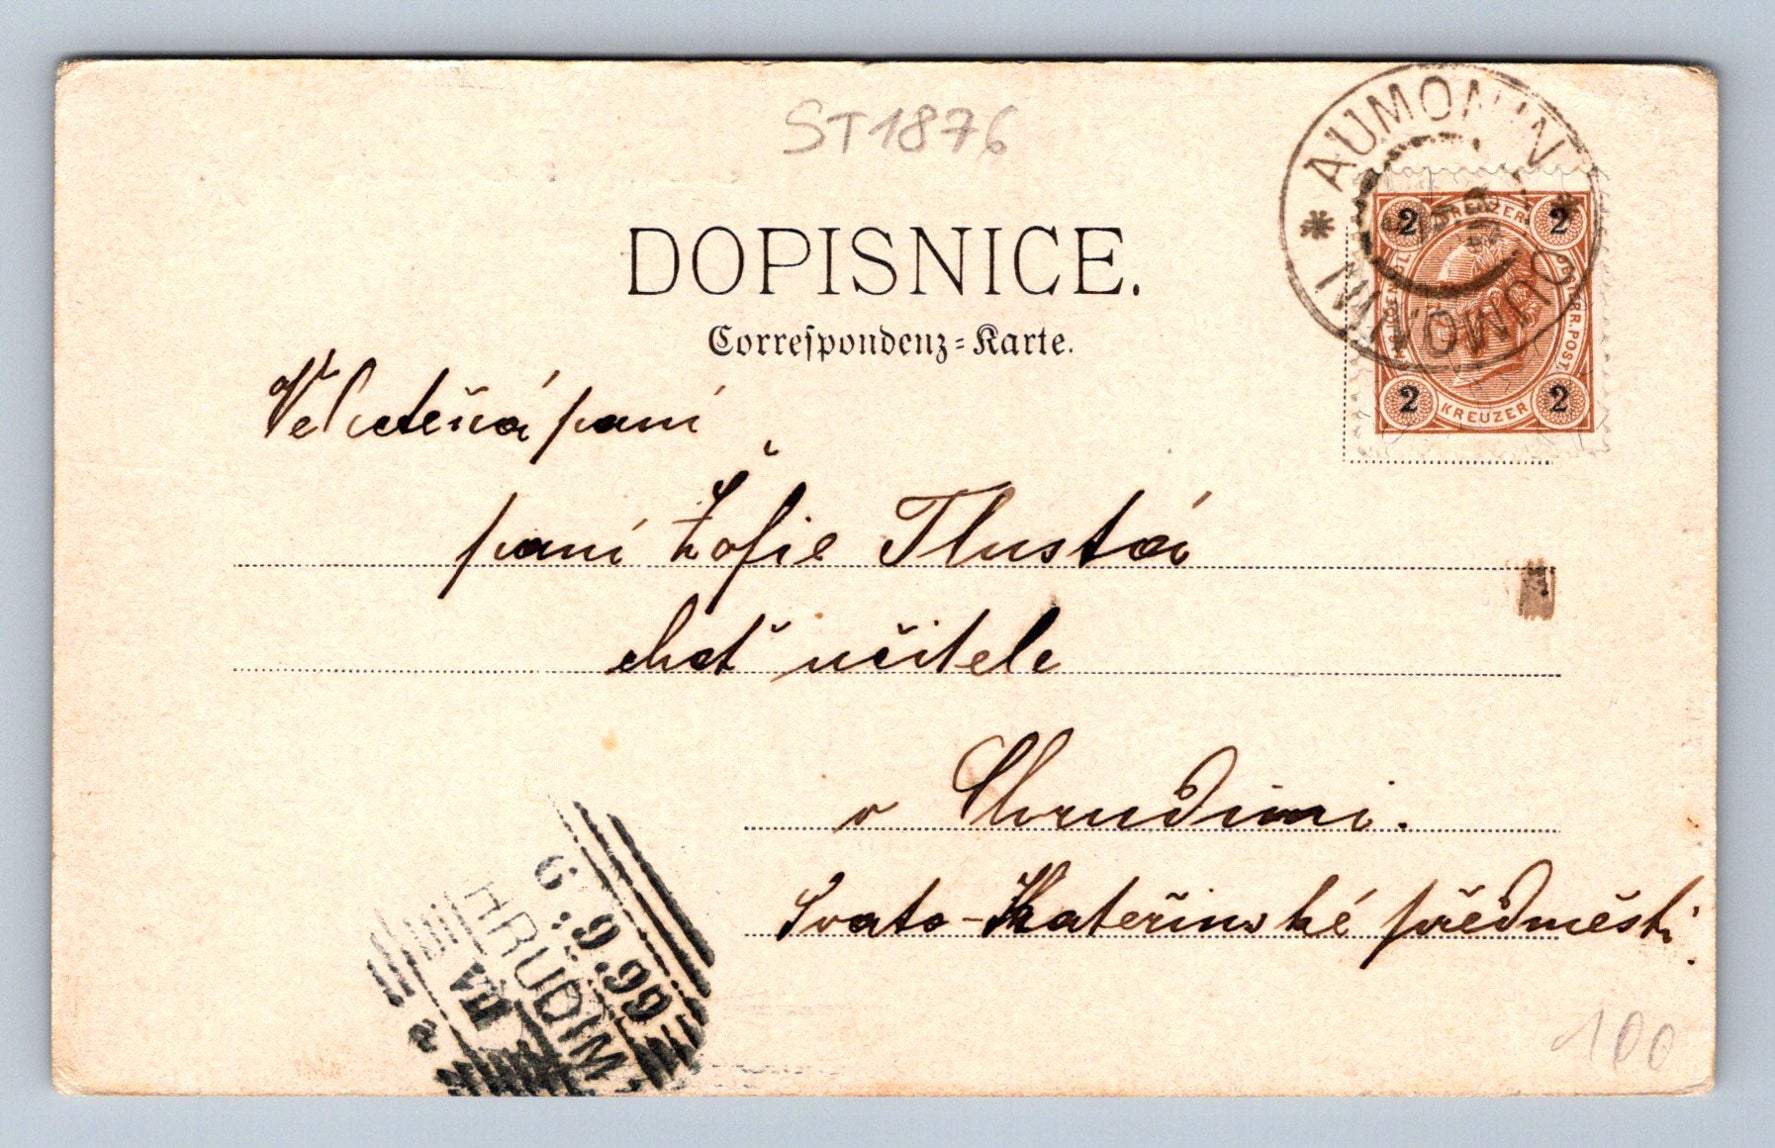 ST1876
AUMONIN
OUMONIN
DOPISNICE.
Correspondenz-Karte.
2 KREUZER 2
2 KREUZER 2
Velectěná paní
paní Žofie Tlustá
choť učitele
v Chrudimi.
Svato-Kateřinské předměstí.
6.9.99
HRUDIM
VII
100